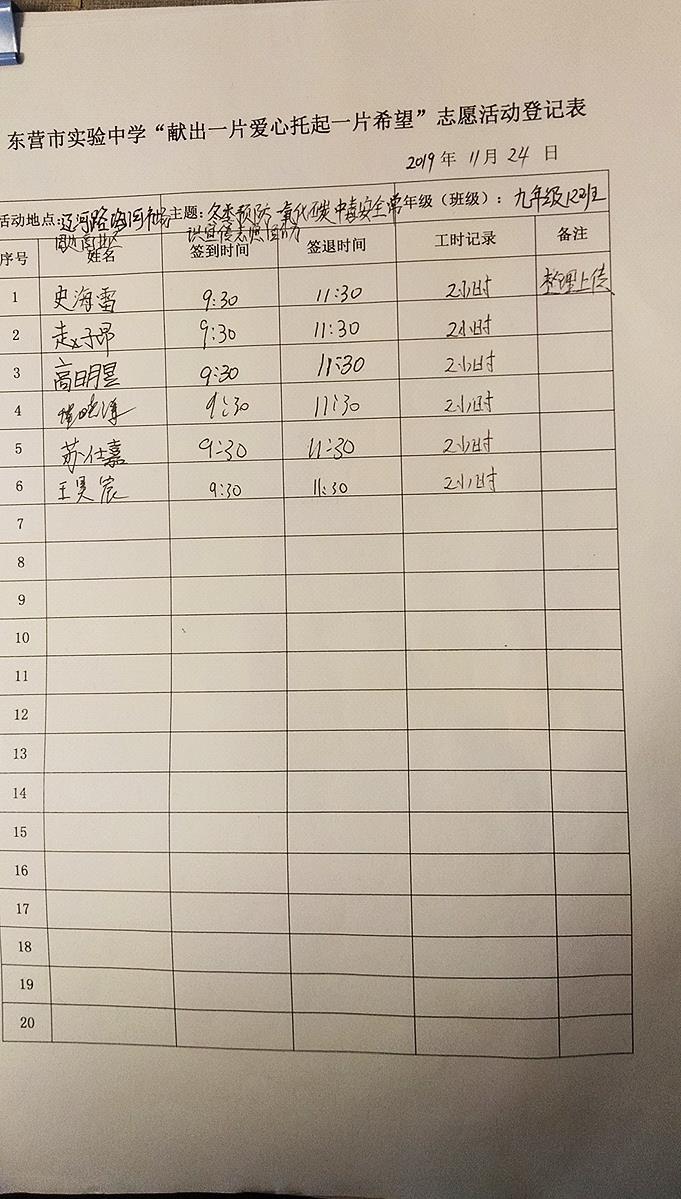 东营市实验中学“献出一片爱心托起一片希望”志愿活动登记表
2019年 11月 24 日
活动地点: 辽河路 主题: 冬季预防一氧化碳中毒安全常识宣传志愿活动 年级（班级）: 九年级12班
序号 姓名 签到时间 签退时间 工时记录 备注
1 史海雷 9:30 11:30 2小时 整理上传
2 子昂 9:30 11:30 2小时
3 高明昱 9:30 11:30 2小时
4 9:30 11:30 2小时
5 苏仕嘉 9:30 11:30 2小时
6 王昊宸 9:30 11:30 2小时
7
8
9
10
11
12
13
14
15
16
17
18
19
20